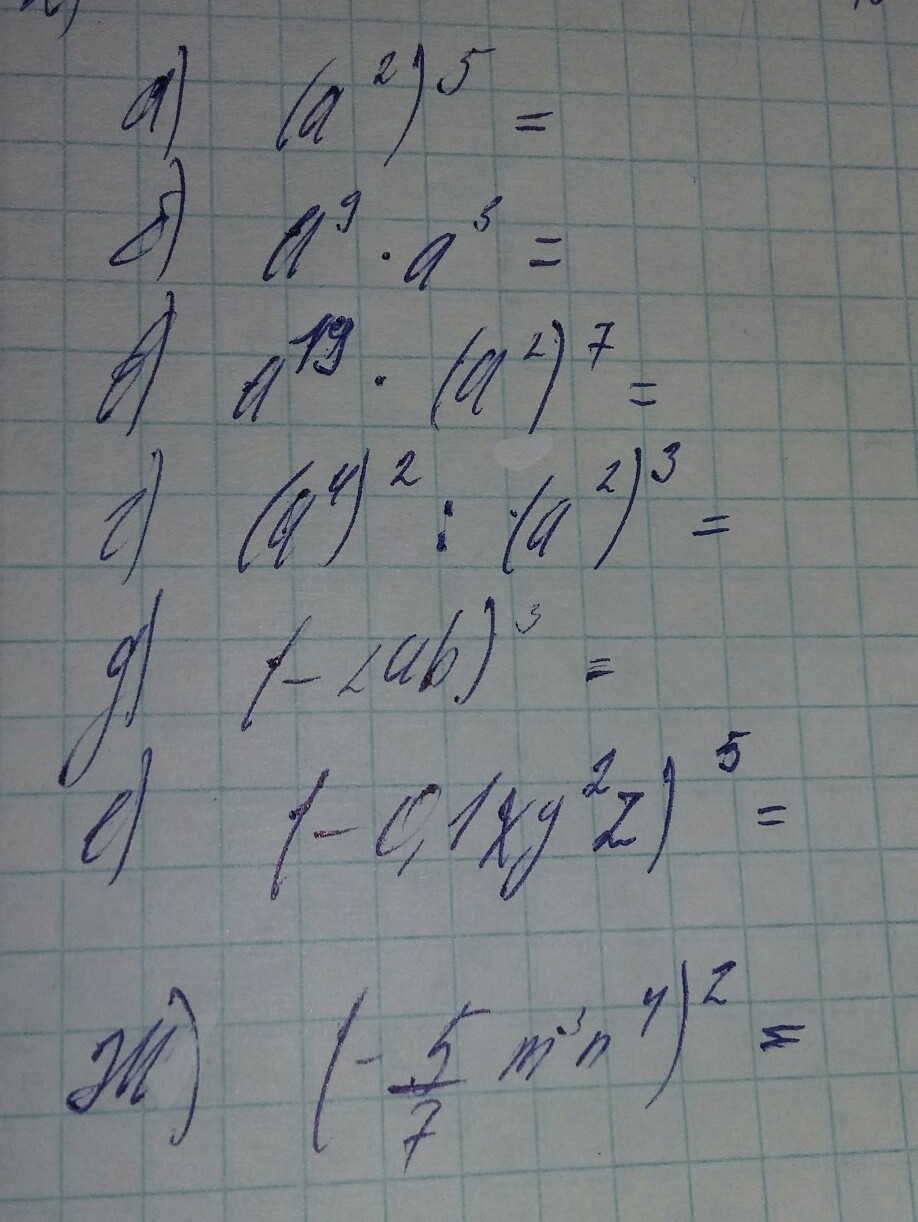 а) (a²)⁵ =
б) a⁹ · a³ =
в) a¹⁹ · (a²)⁷ =
г) (a⁴)² : (a²)³ =
д) (-2ab)³ =
е) (-0,1xy²z)⁵ =
ж) (-5/7 m³n⁴)² =